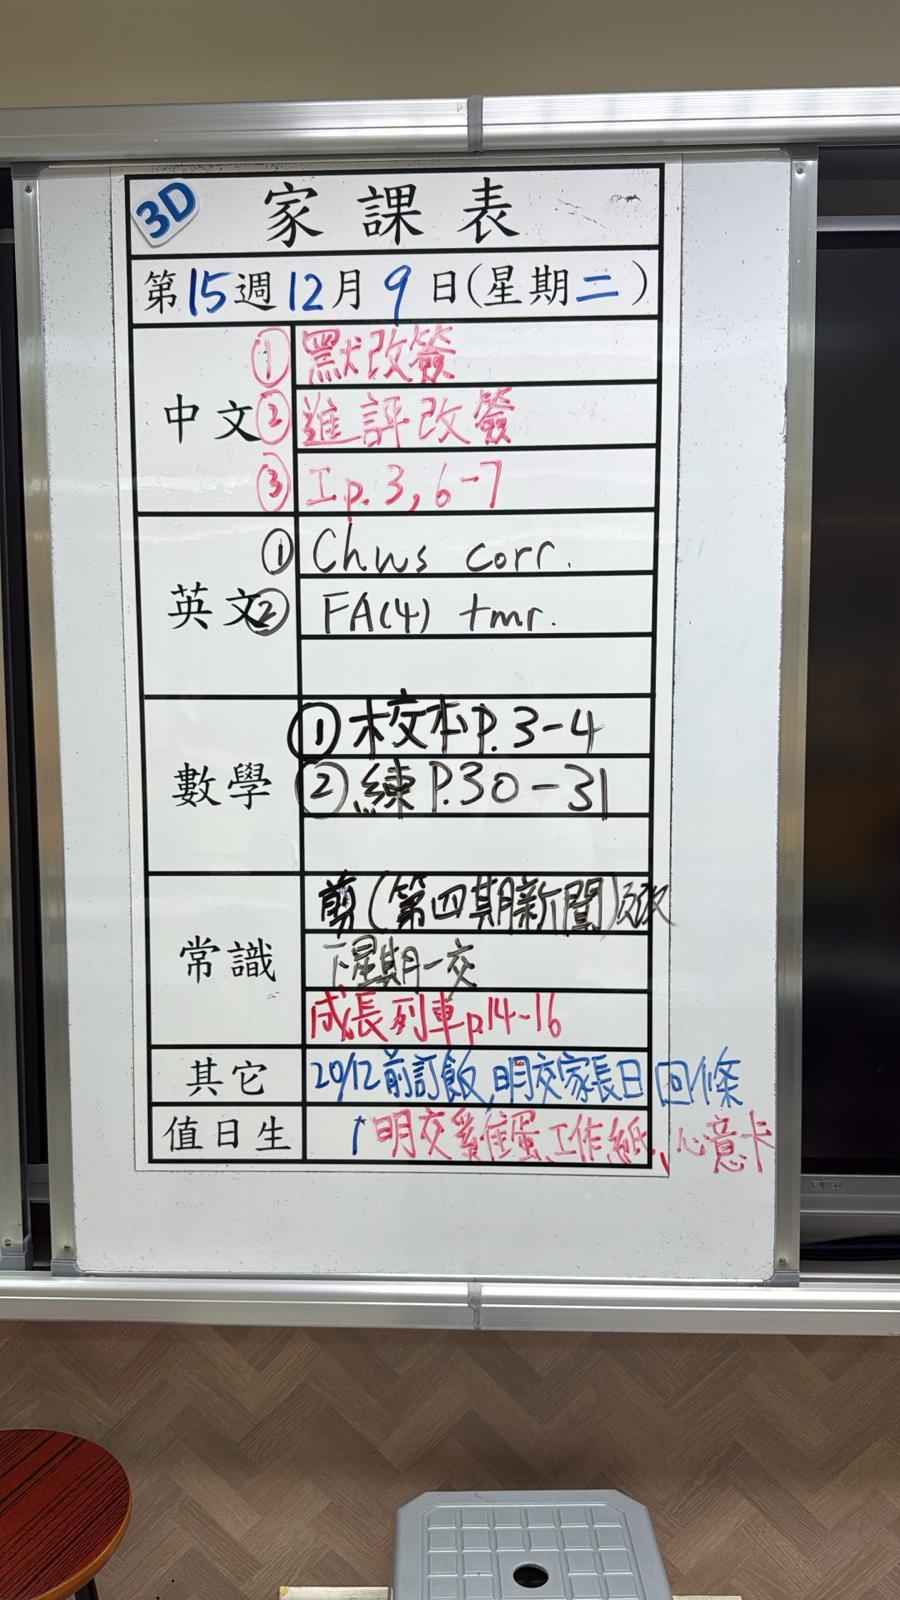 3D 家課表
第15週12月9日(星期二)
中文 ① 默改簽
② 進評改簽
③ 工p.3,6-7
英文 ① Chws corr.
② FA(4) tmr.
數學 ① 校本P.3-4
② 練P.30-31
常識 剪(第四期新聞)
下星期一交
成長列車p.14-16
其它 20/12前訂飯,明交家長日回條
值日生 ↑明交 工作紙、心意卡